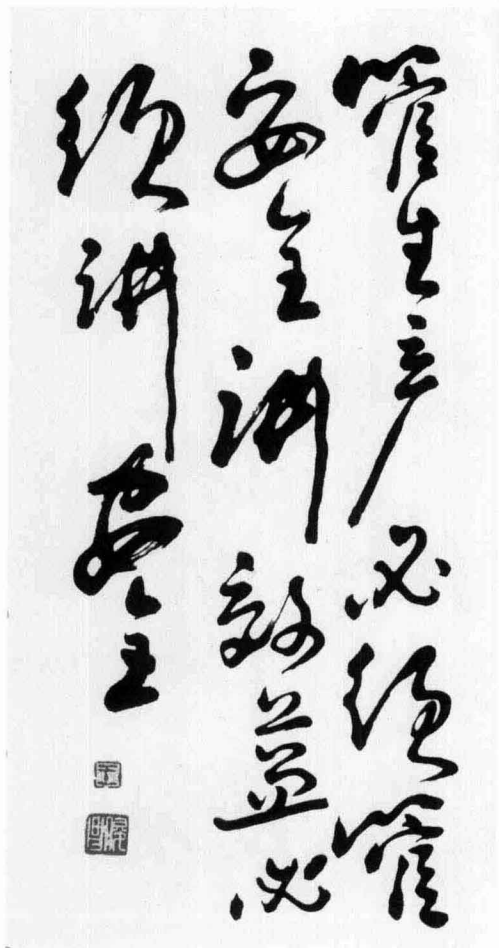 管生产必须管
安全讲效益必
须讲安全